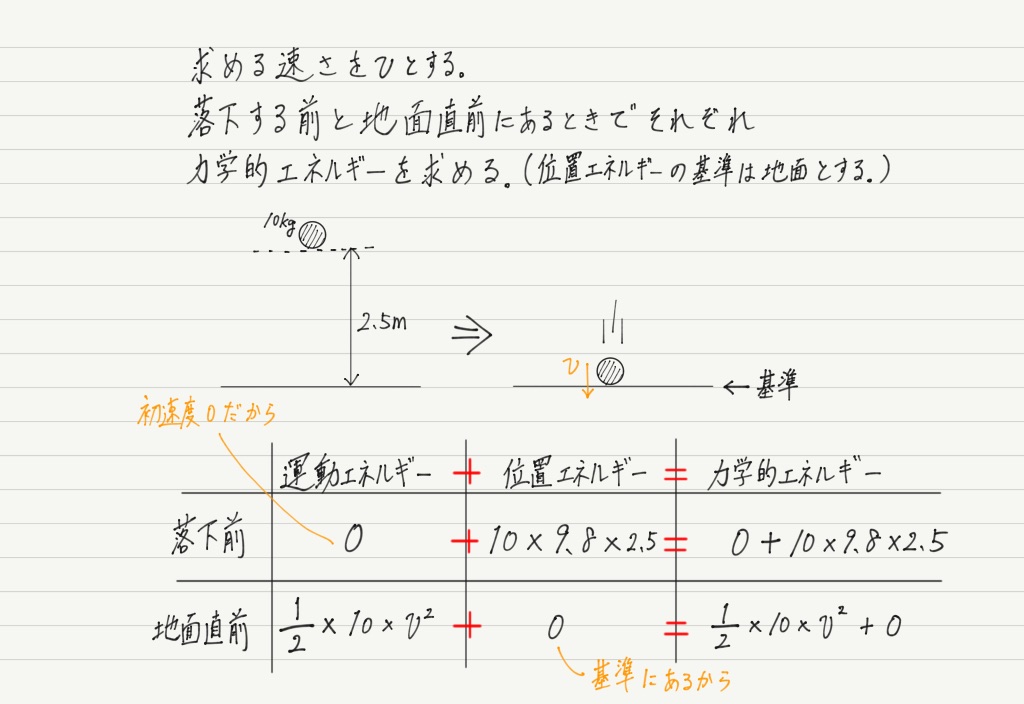 求める速さをvとする。
落下する前と地面直前にあるときでそれぞれ
力学的エネルギーを求める。(位置エネルギーの基準は地面とする。)
10kg
2.5m
v
←基準
初速度0だから
運動エネルギー + 位置エネルギー = 力学的エネルギー
落下前 0 + 10×9.8×2.5 = 0+10×9.8×2.5
地面直前 1/2×10×v² + 0 = 1/2×10×v²+0
基準にあるから